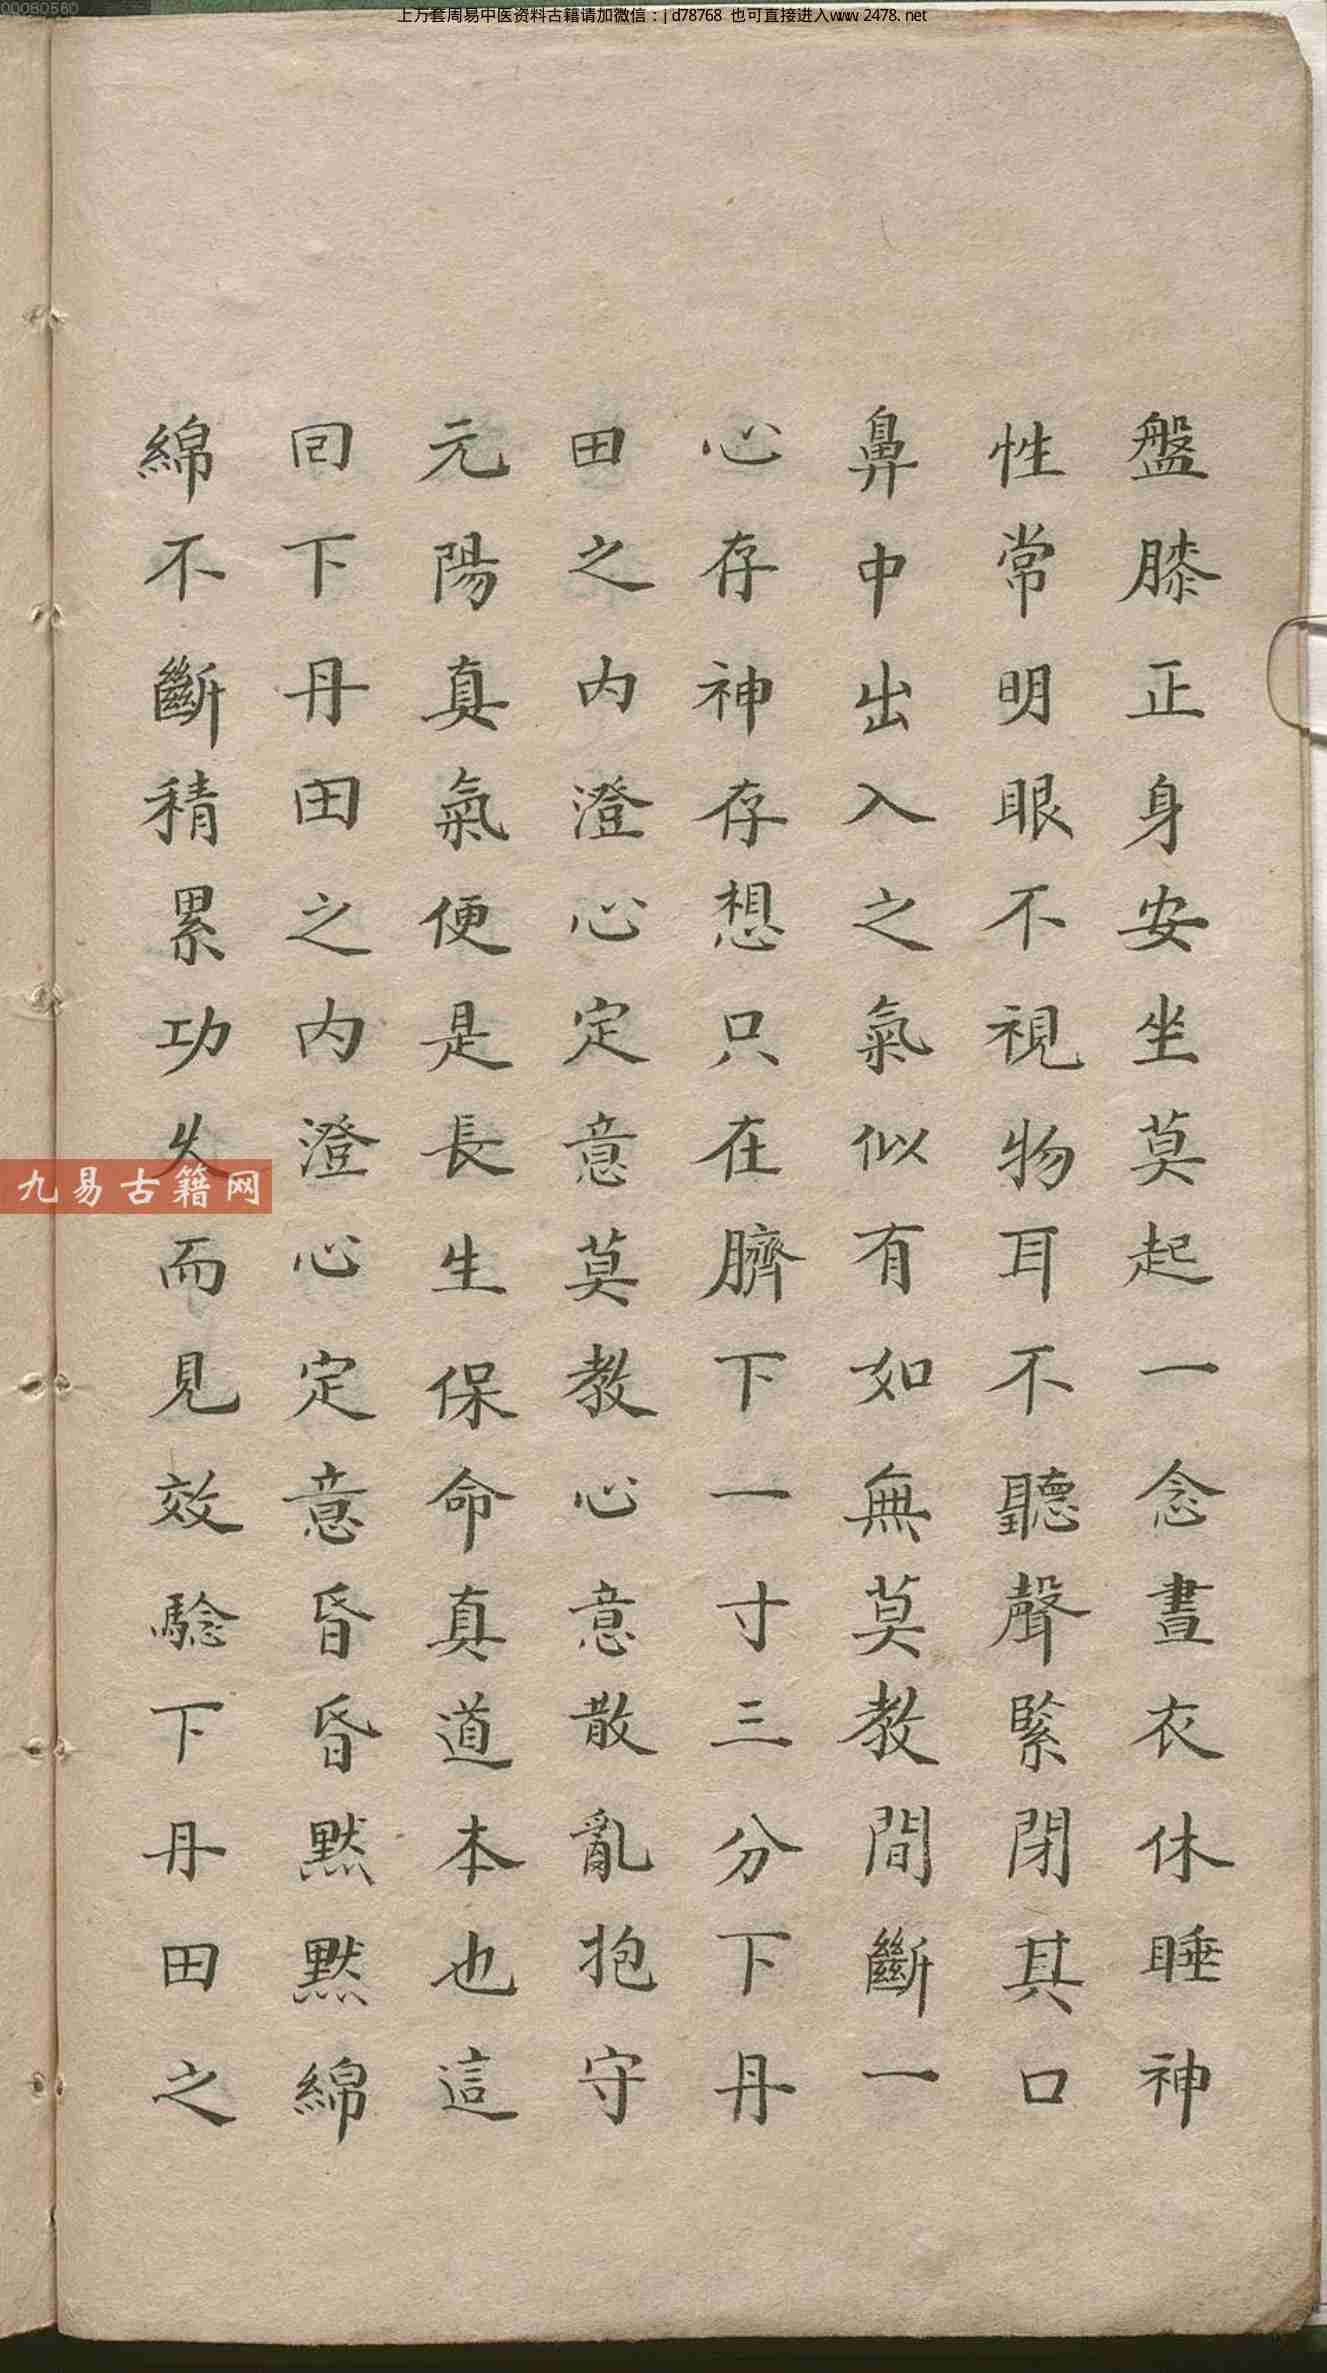 00080580
上万套周易中医资料古籍请加微信：j d78768 也可直接进入www 2478. net
盤膝正身安坐莫起一念晝衣休睡神
性常明眼不視物耳不聽聲緊閉其口
鼻中出入之氣似有如無莫教間斷一
心存神存想只在臍下一寸三分下丹
田之内澄心定意莫教心意散亂抱守
元陽真氣便是長生保命真道本也這
囘下丹田之内澄心定意昏昏默默綿
綿不斷積累功久而見效騐下丹田之
九易古籍网